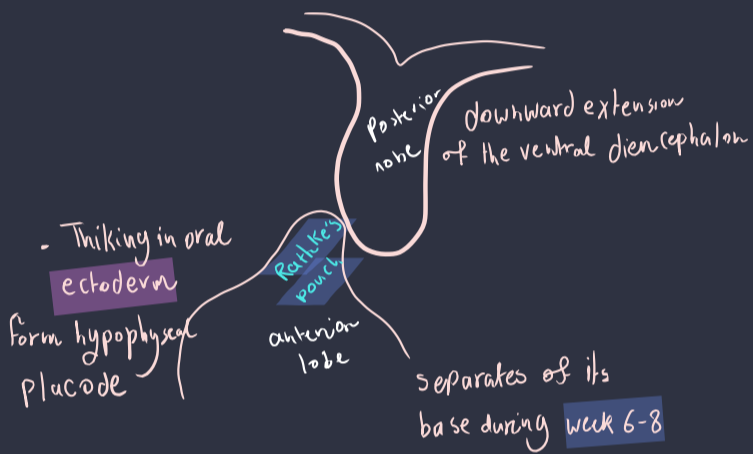 Posterior
nobe
downward extension
of the ventral diencephalon
- Thiking in oral
ectoderm
form hypophyseal
placode
Rathke's
pouch
anterior
lobe
separates of its
base during week 6-8